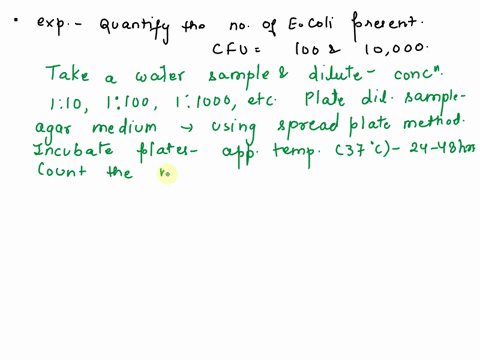 • exp.- Quantify the no. of E.Coli present.
CFU = 100 & 10,000.
Take a water sample & dilute - concⁿ.
1:10, 1:100, 1:1000, etc. Plate dil. sample-
agar medium → using spread plate method.
Incubate plates- app. temp. (37°C)- 24-48hrs
Count the